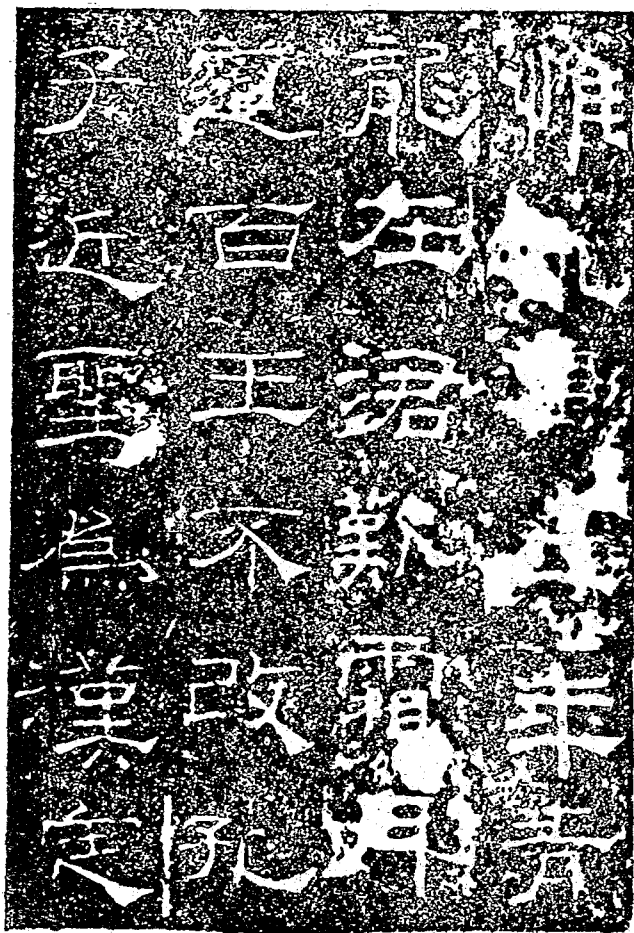 惟年青
龍在涒歎霜月
百王不改孔
子近聖為漢定